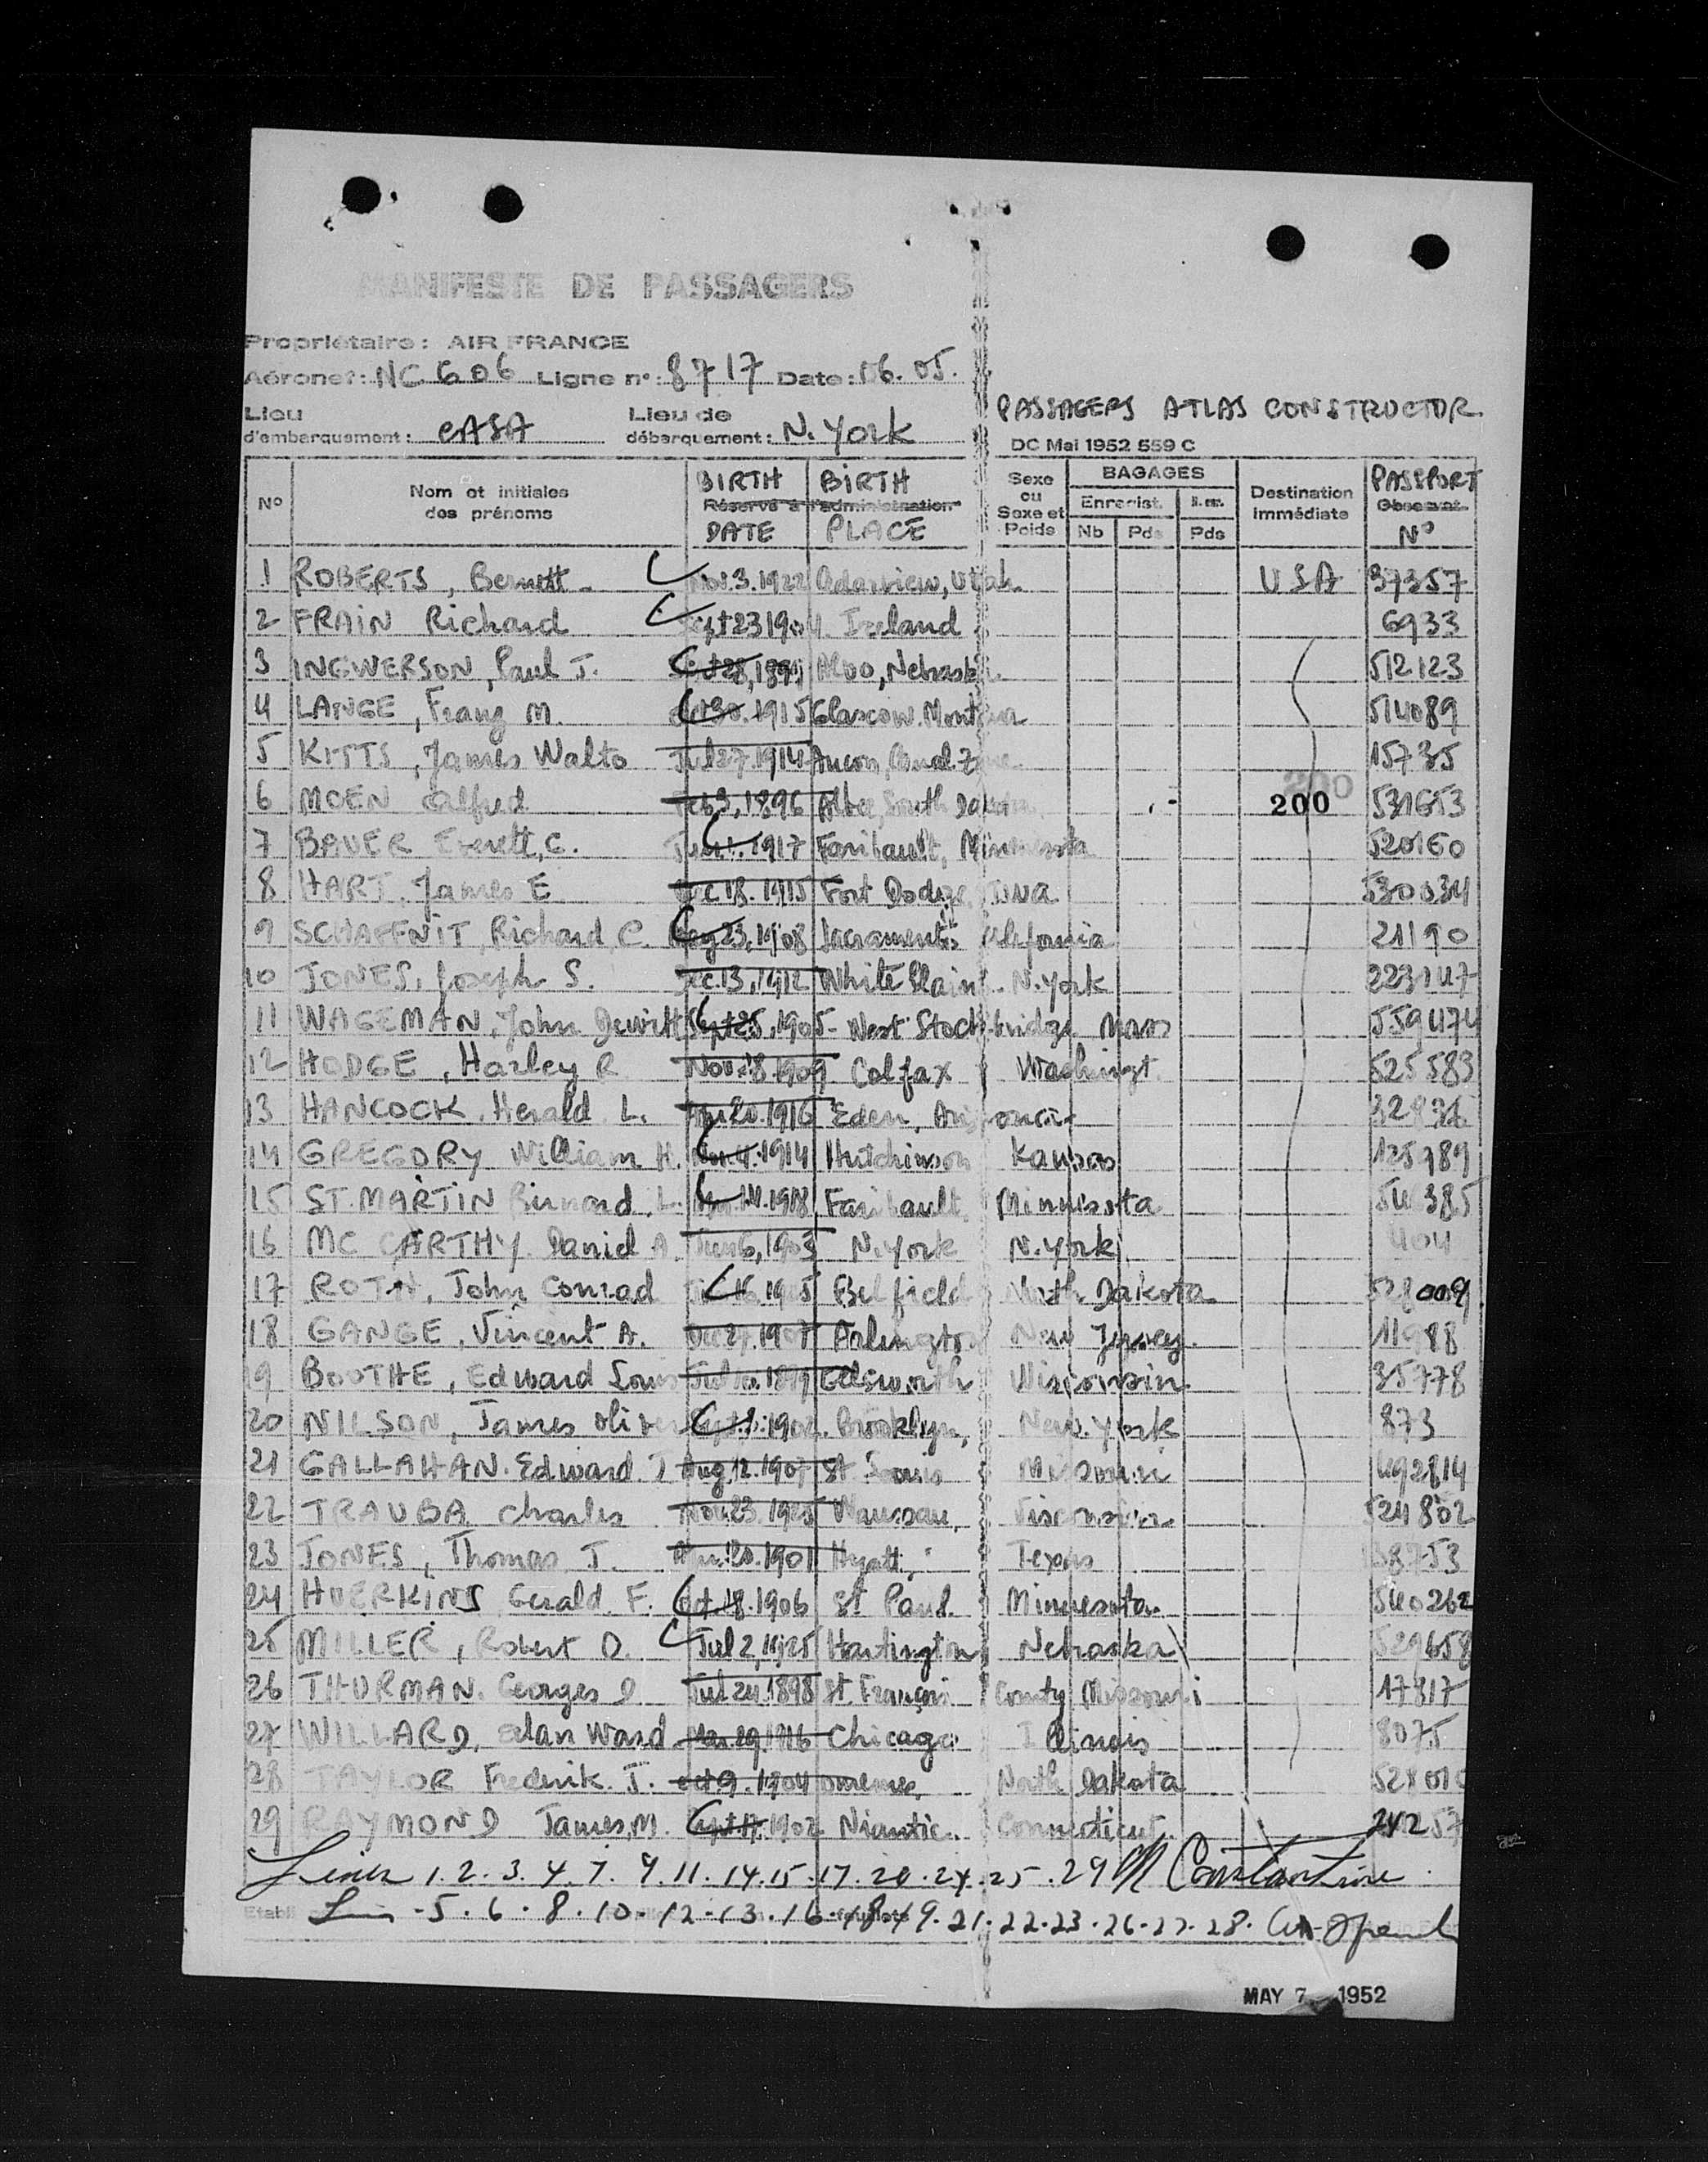 MANIFESTE DE PASSAGERS
Propriétaire : AIR FRANCE
Aéronef : NC 606 Ligne n° : 8717 Date : 06.05.
Lieu d'embarquement : CASA Lieu de débarquement : N. York
PASSAGERS ATLAS CONSTRUCTOR.
DC Mai 1952 559 C
N° Nom et initiales des prénoms BIRTH DATE BIRTH PLACE Sexe ou Sexe et Poids BAGAGES Enregist. Nb Pds Pds Destination immédiate PASSPORT N°
Réservé à l'administration
1 ROBERTS, Bennett Nov.3.1922 Utah USA 37357
2 FRAIN Richard Sept 23 1904 Ireland 6933
3 INGWERSON, Paul J. Alvo, Nebraska 512123
4 LANGE, Franz M. 1915 Glascow. Montana 514089
5 KITTS, James Walto Jul 27.1914 Ancon, Canal Zone 15735
6 MOEN Alfred Feb 3, 1896 South Dakota 200 531653
7 BAUER Everett, C. 1917 Faribault, Minnesota 520160
8 HART. James E Dec 18. 1915 Fort Dodge Iowa 530034
9 SCHAFFNIT, Richard C. 23, 1908 Sacramento California 21190
10 JONES, Joseph S. Dec.13, 1912 White Plain N. York 223147
11 WAGEMAN, John Dewitt Sept 25, 1905 West Stockbridge Mass 559474
12 HODGE, Harley R Nov. 18 1909 Colfax Washingt. 525583
13 HANCOCK. Herald L. 20.1916 Eden, Arizona
14 GREGORY William H. 1914 Hutchinson Kansas 125989
15 ST. MARTIN Bernard. L. 1918 Faribault Minnesota
16 MC CARTHY Daniel A. 1903 N. York N. York 404
17 ROTH, John Conrad Belfield North Dakota 528009
18 GANGE, Vincent A. Dec 27.1907 Arlington New Jersey 11988
19 BOOTHE, Edward Louis Ellsworth Wisconsin 35778
20 NILSON, James Oliver Brooklyn, New. York 873
21 GALLAHAN. Edward. J Aug.12.1907 St Louis Missouri 492814
22 TRAUBA Charles Nov.23.1925 Wausau, Visconsin 524802
23 JONES, Thomas J. 20.1901 Hyatt, Texas
24 HUERKINS Gerald. F. Oct.18.1906 St Paul. Minnesota 540262
25 MILLER, Robert D. Jul 2, 1925 Hartington Nebraska 529658
26 THURMAN. Georges D Jul 24.1898 St. François County Missouri 17817
27 WILLARD, Alan Ward 29.1916 Chicago Illinois 8075
28 TAYLOR Frederik. J. oct 9. 1904 omemee, North Dakota
29 RAYMOND James, M. Sept 17.1902 Niantic. Connecticut. 24257
Lines 1.2.3.4.7.9.11.14.15.17.20.24.25.29 M Constantine
5.6.8.10.12.13.16.18.19.21.22.23.26.27.28.
MAY 7 1952